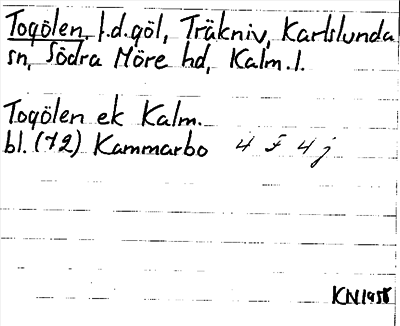 Togölen, f.d.göl, Träkniv, Karlslunda
sn, Södra Möre hd, Kalm. l.
Togölen ek Kalm.
bl. (72) Kammarbo 4 F 4 j
KN 1958